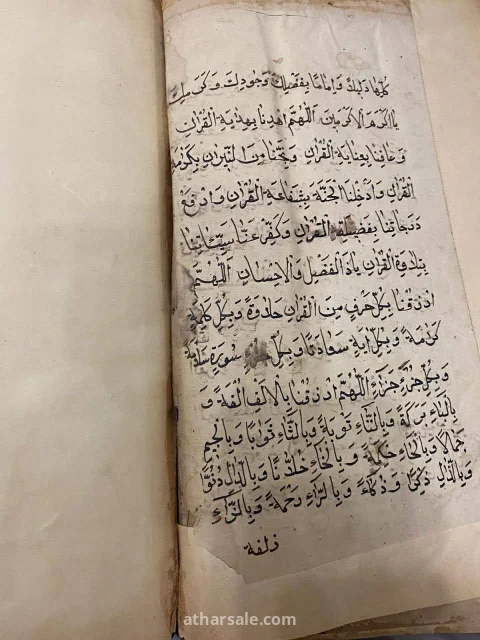 كلها دليلا واماما بفضلك وجودك وكرمك
يا اكرم الاكرمين اللهم اهدنا بهداية القران
وعافنا بعناية القران ونجنا من النيران بكرامة
القران وادخلنا الجنة بشفاعة القران وارفع
درجاتنا بفضيلة القران وكفر عنا سيئاتنا
بتلاوة القران ياذا الفضل والاحسان اللهم
ارزقنا بكل حرف من القران حلاوة وبكل كلمة
كرامة وبكل اية سعادة وبكل سورة سلامة
وبكل جزء جزاء اللهم ارزقنا بالالف الفة و
بالباء بركة وبالتاء توبة وبالثاء ثوابا وبالجيم
جمالا وبالحاء حكمة وبالخاء خلدنا وبالدال دنوا
وبالذال ذكرا وذكاء وبالراء رحمة وبالزاء
زلفة
atharsale.com